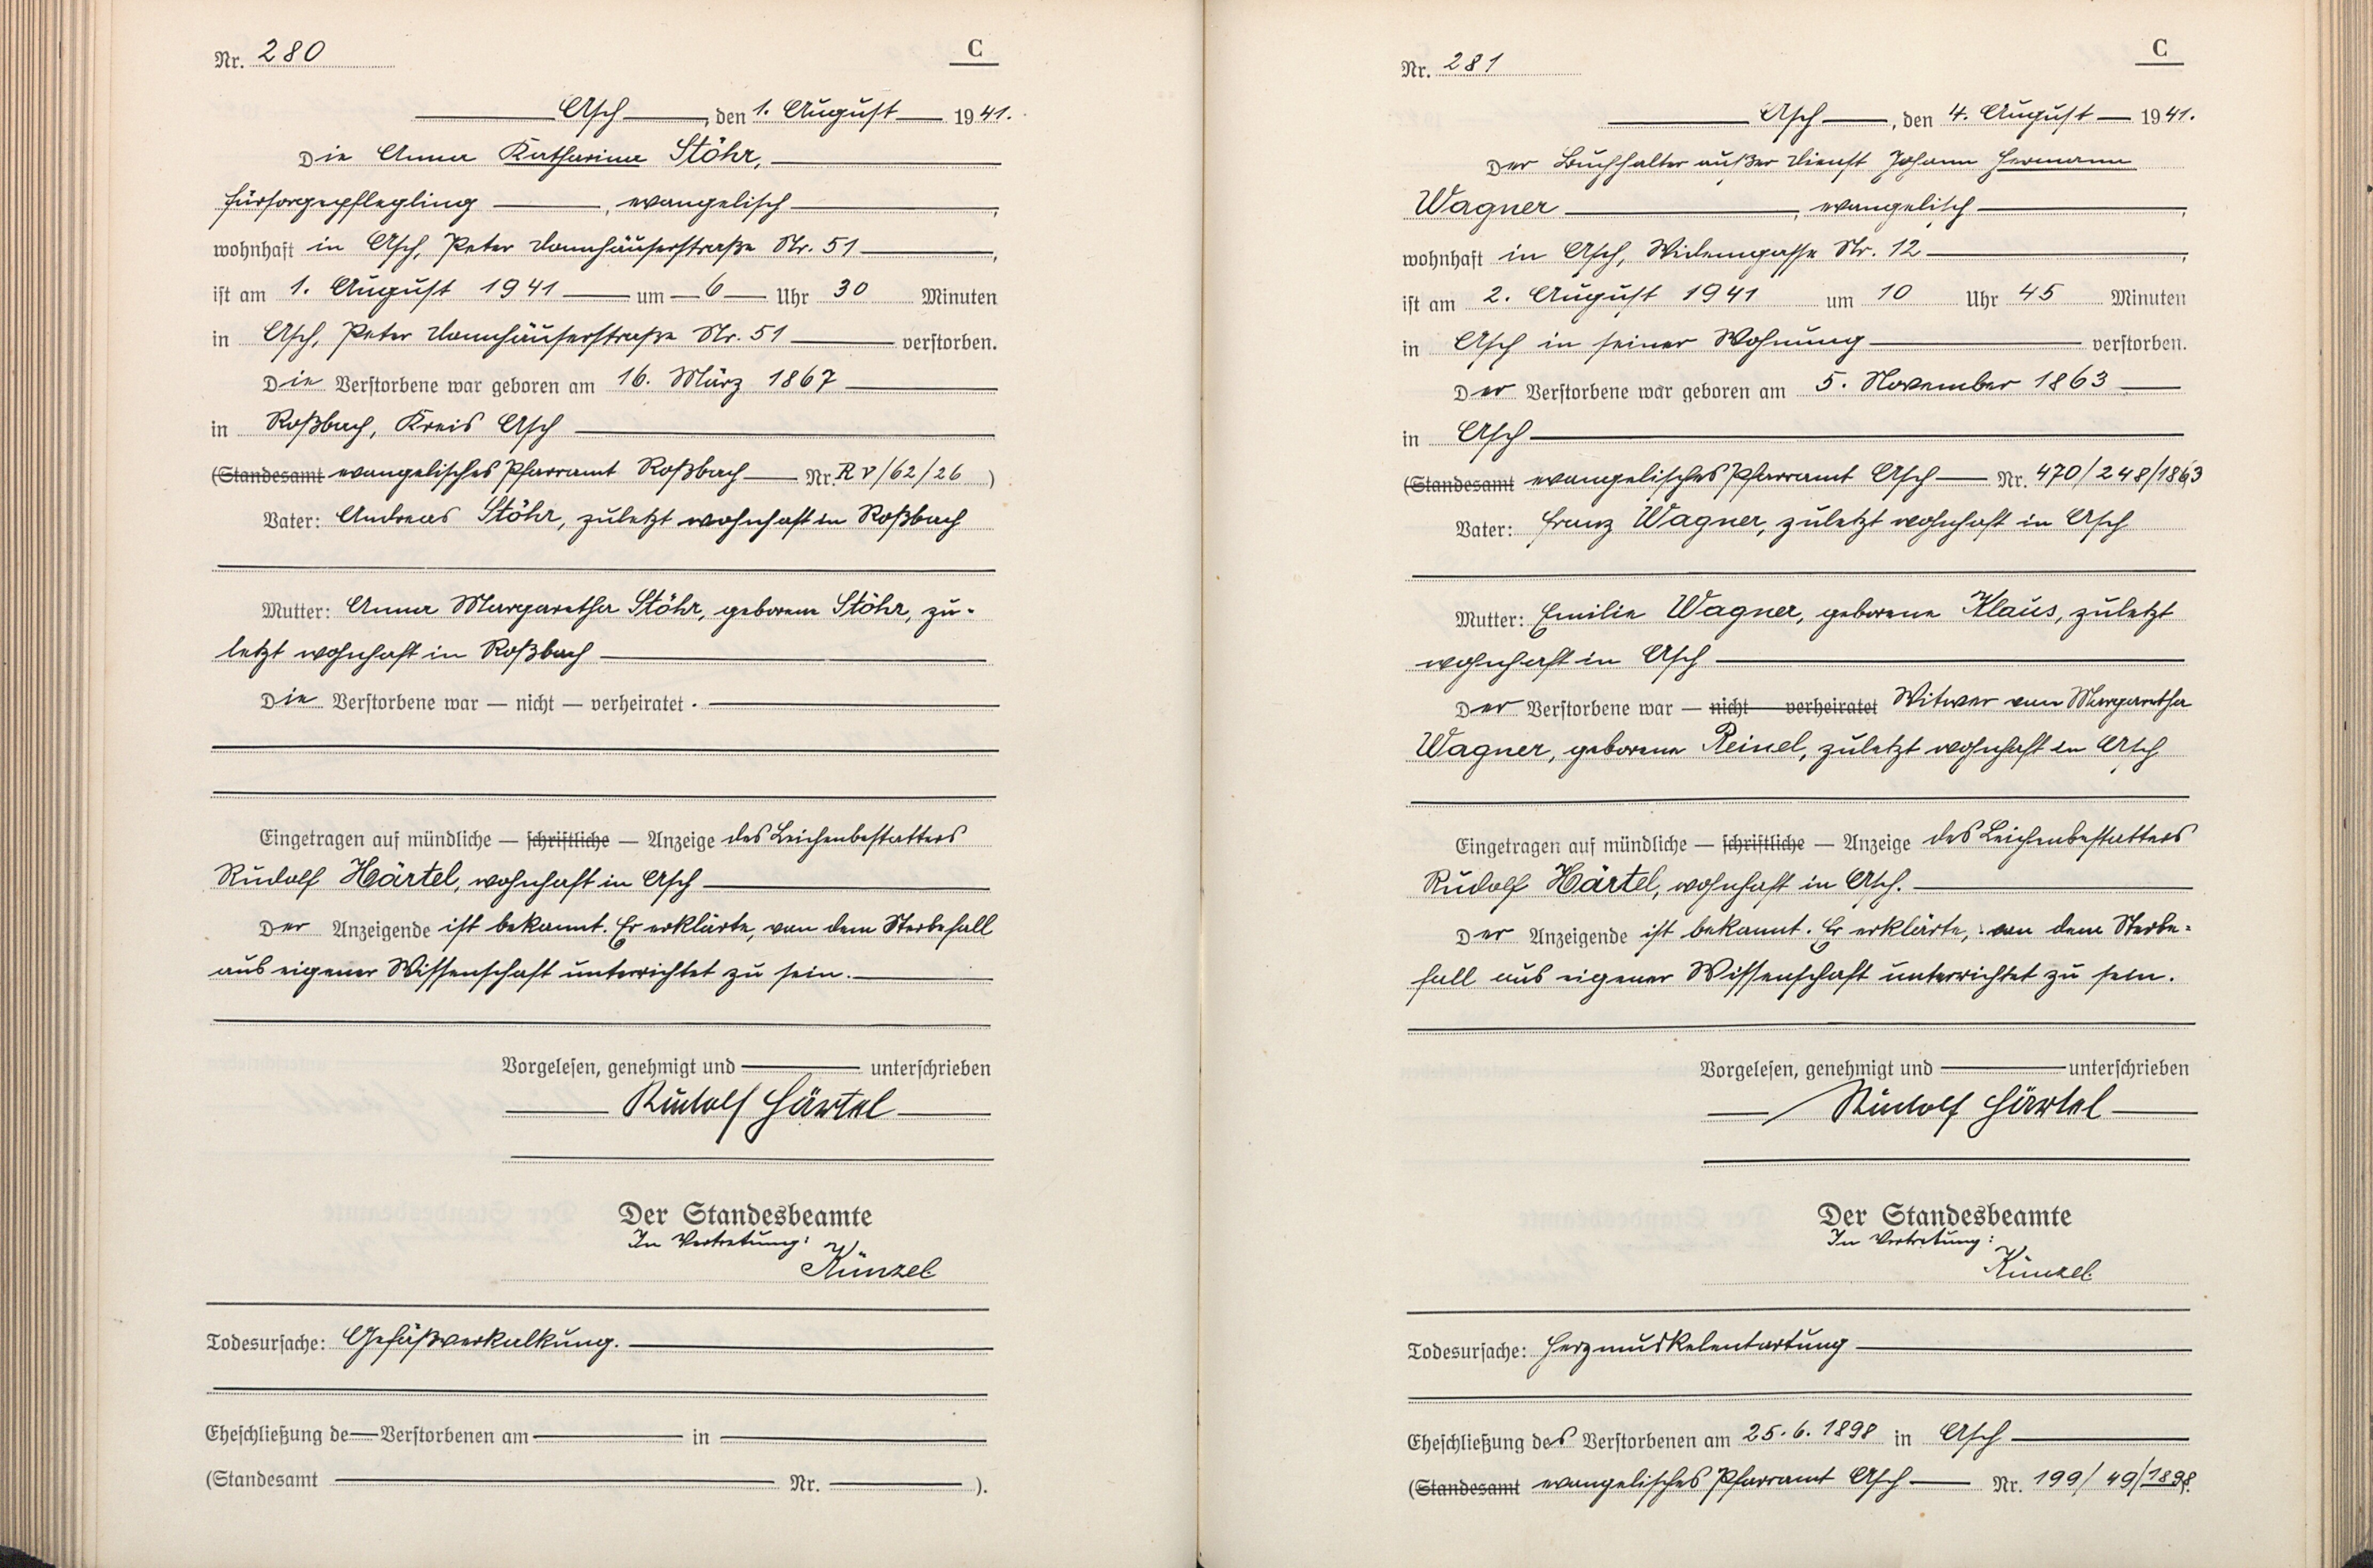 Nr. 280
C
Asch, den 1. August 1941.
Die Anna Katharina Stöhr,
Fürsorgepflegling, evangelisch,
wohnhaft in Asch, Peter Donnhäuserstraße Nr. 51,
ist am 1. August 1941 um 6 Uhr 30 Minuten
in Asch, Peter Donnhäuserstraße Nr. 51 verstorben.
Die Verstorbene war geboren am 16. März 1867
in Roßbach, Kreis Asch
(Standesamt evangelisches Pfarramt Roßbach Nr. R V/62/26)
Vater: Andreas Stöhr, zuletzt wohnhaft in Roßbach
Mutter: Anna Margaretha Stöhr, geborene Stöhr, zu-
letzt wohnhaft in Roßbach
Die Verstorbene war — nicht — verheiratet.
Eingetragen auf mündliche — schriftliche — Anzeige des Leichenbestatters
Rudolf Härtel, wohnhaft in Asch
Der Anzeigende ist bekannt. Er erklärte, von dem Sterbefall
aus eigener Wissenschaft unterrichtet zu sein.
Vorgelesen, genehmigt und unterschrieben
Rudolf Härtel
Der Standesbeamte
In Vertretung:
Künzel
Todesursache: Gefäßverkalkung.
Eheschließung de Verstorbenen am in
(Standesamt Nr. ).
Nr. 281
C
Asch, den 4. August 1941.
Der Buchhalter außer Dienst Johann Hermann
Wagner, evangelisch,
wohnhaft in Asch, Widemgasse Nr. 12,
ist am 2. August 1941 um 10 Uhr 45 Minuten
in Asch in seiner Wohnung verstorben.
Der Verstorbene war geboren am 5. November 1863
in Asch
(Standesamt evangelisches Pfarramt Asch Nr. 470/248/1863
Vater: Franz Wagner, zuletzt wohnhaft in Asch
Mutter: Emilie Wagner, geborene Klaus, zuletzt
wohnhaft in Asch
Der Verstorbene war — nicht — verheiratet Witwer von Margaretha
Wagner, geborene Reinel, zuletzt wohnhaft in Asch
Eingetragen auf mündliche — schriftliche — Anzeige des Leichenbestatters
Rudolf Härtel, wohnhaft in Asch.
Der Anzeigende ist bekannt. Er erklärte, von dem Sterbe-
fall aus eigener Wissenschaft unterrichtet zu sein.
Vorgelesen, genehmigt und unterschrieben
Rudolf Härtel
Der Standesbeamte
In Vertretung:
Künzel
Todesursache: Herzmuskelentartung
Eheschließung des Verstorbenen am 25.6.1898 in Asch
(Standesamt evangelisches Pfarramt Asch Nr. 199/49/1898.